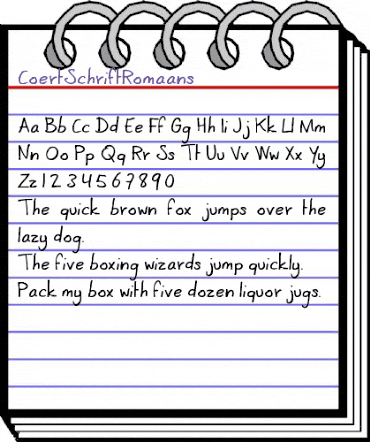 CoertSchriftRomaans
Aa Bb Cc Dd Ee Ff Gg Hh Ii Jj Kk Ll Mm
Nn Oo Pp Qq Rr Ss Tt Uu Vv Ww Xx Yy
Zz 1 2 3 4 5 6 7 8 9 0
The quick brown fox jumps over the
lazy dog.
The five boxing wizards jump quickly.
Pack my box with five dozen liquor jugs.